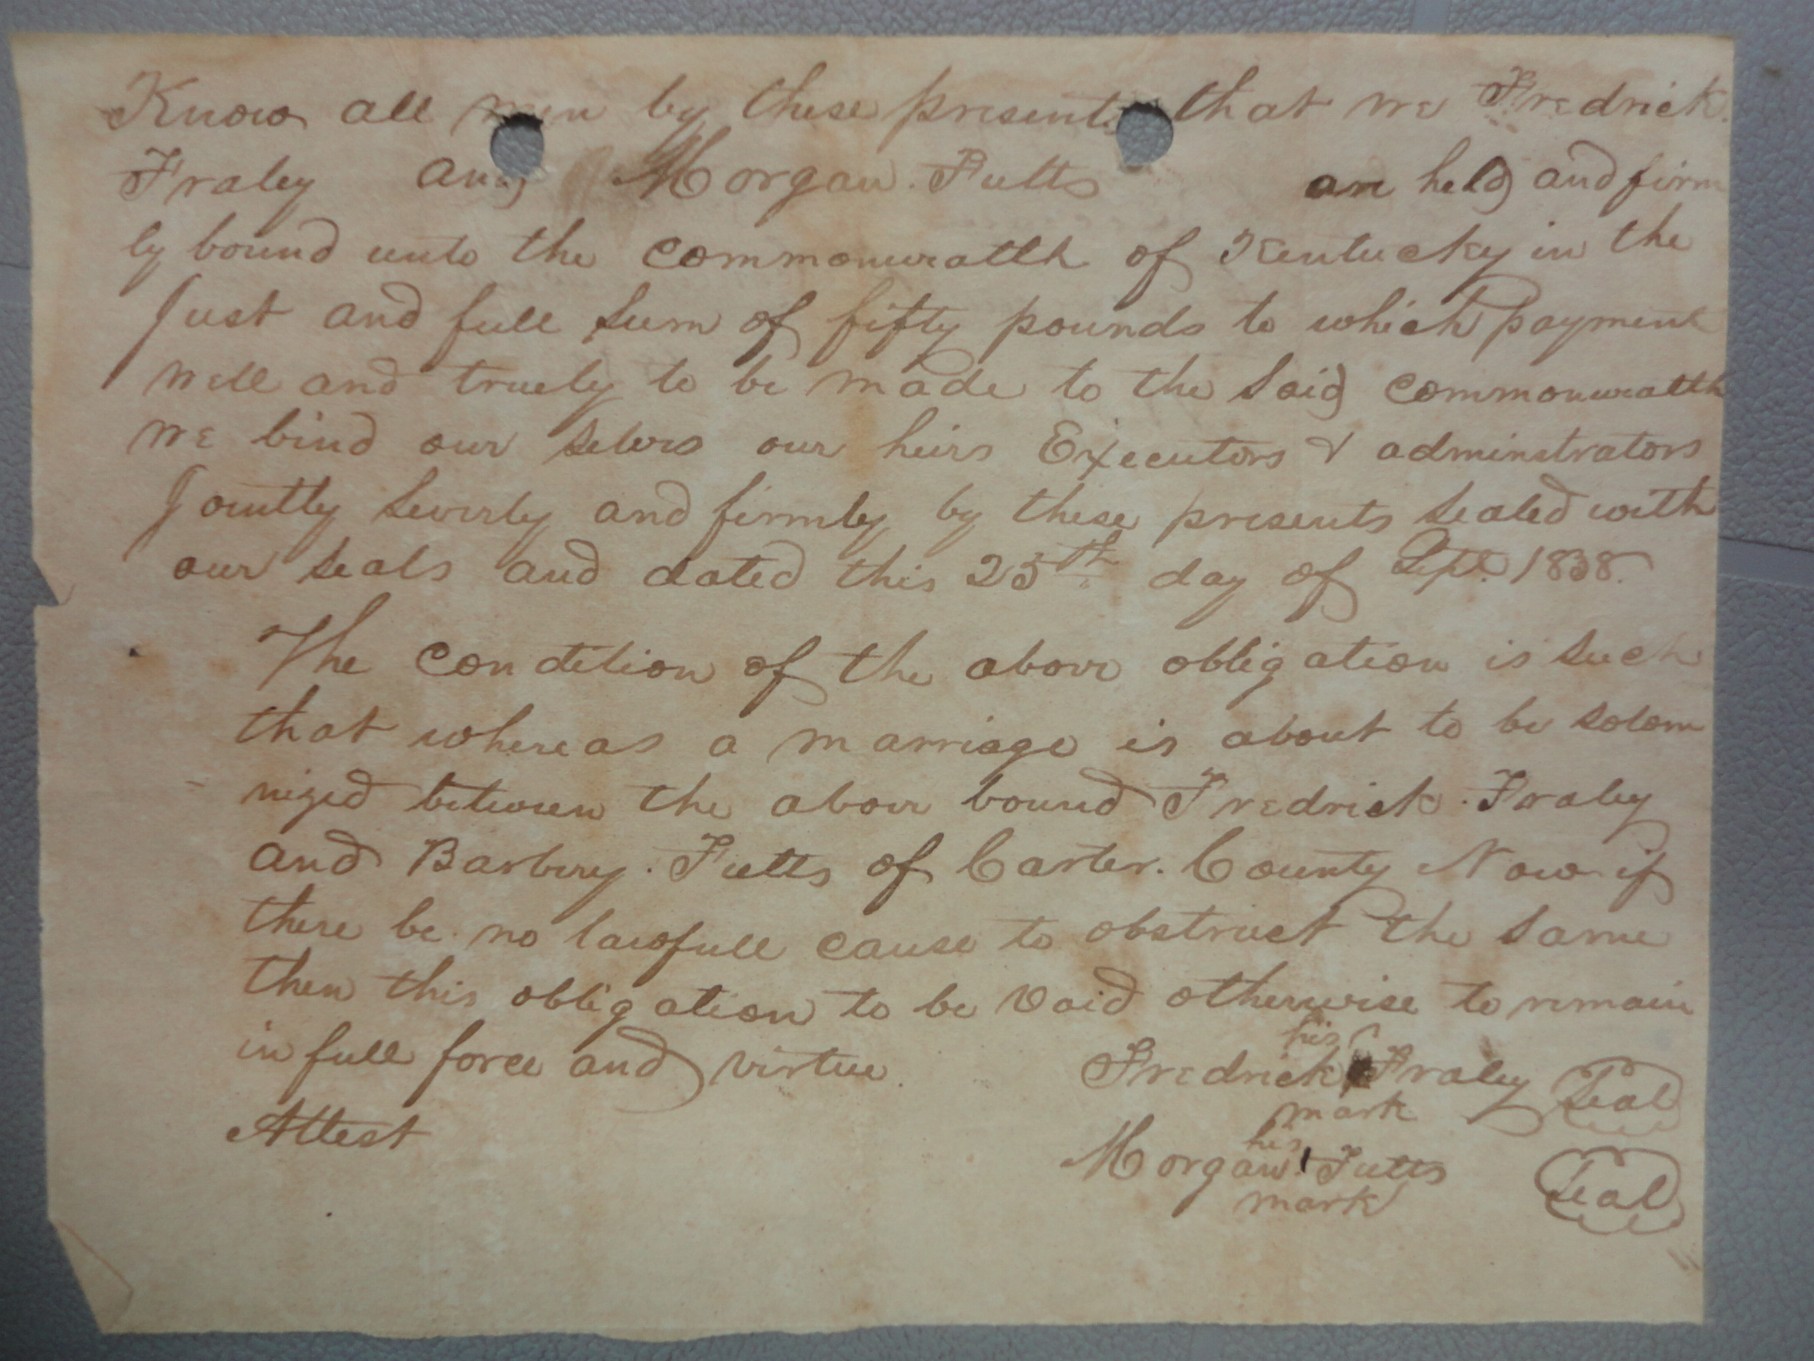 Know all men by these presents that we Fredrick
Fraley and Morgan Fults are held and firm
ly bound unto the commonwealth of Kentucky in the
Just and full sum of fifty pounds to which payment
well and truely to be made to the said commonwealth
we bind our selves our heirs Executors & adminstrators
Jointly severly and firmly by these presents sealed with
our seals and dated this 25th day of Sept. 1838.
The condition of the above obligation is such
that whereas a marriage is about to be solom
nized between the above bound Fredrick Fraley
and Barbery Fults of Carter County Now if
there be no lawfull cause to obstruct the same
then this obligation to be void otherwise to remain
in full force and virtue
his
Fredrick Fraley Seal
mark
Attest
his
Morgan Fults Seal
mark